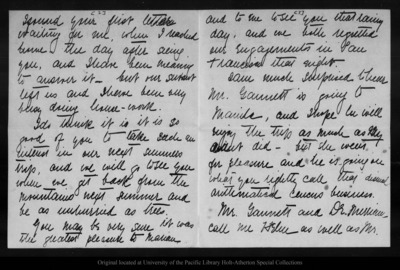 I found your first letter
waiting for me, when I reached
home the day after seeing
you, and I have been meaning
to answer it — but our servant
left us and I have been very
busy doing house-work.
I do think it is
so
good of you to take such an
interest in our next summer's
trip, and we will go to see you
when we get back from the
mountains next summer and
be as unhurried as trees.
You may be very sure it was
the greatest pleasure to Marian
and to me to see you that rainy
day, and we both regretted
our engagements in San
Francisco that night.
I am much surprised to hear
Mr. Gannett is going to
Manila, and I hope he will
enjoy the trip as much as they
did — but she went
for pleasure and he is going on
what you rightly call that dismal
arithmetical census business.
Mr. Gannett and Dr. Merriam
call me as well as Mr.
Copyright status undetermined
Image © University of the Pacific Library Holt-Atherton Special Collections